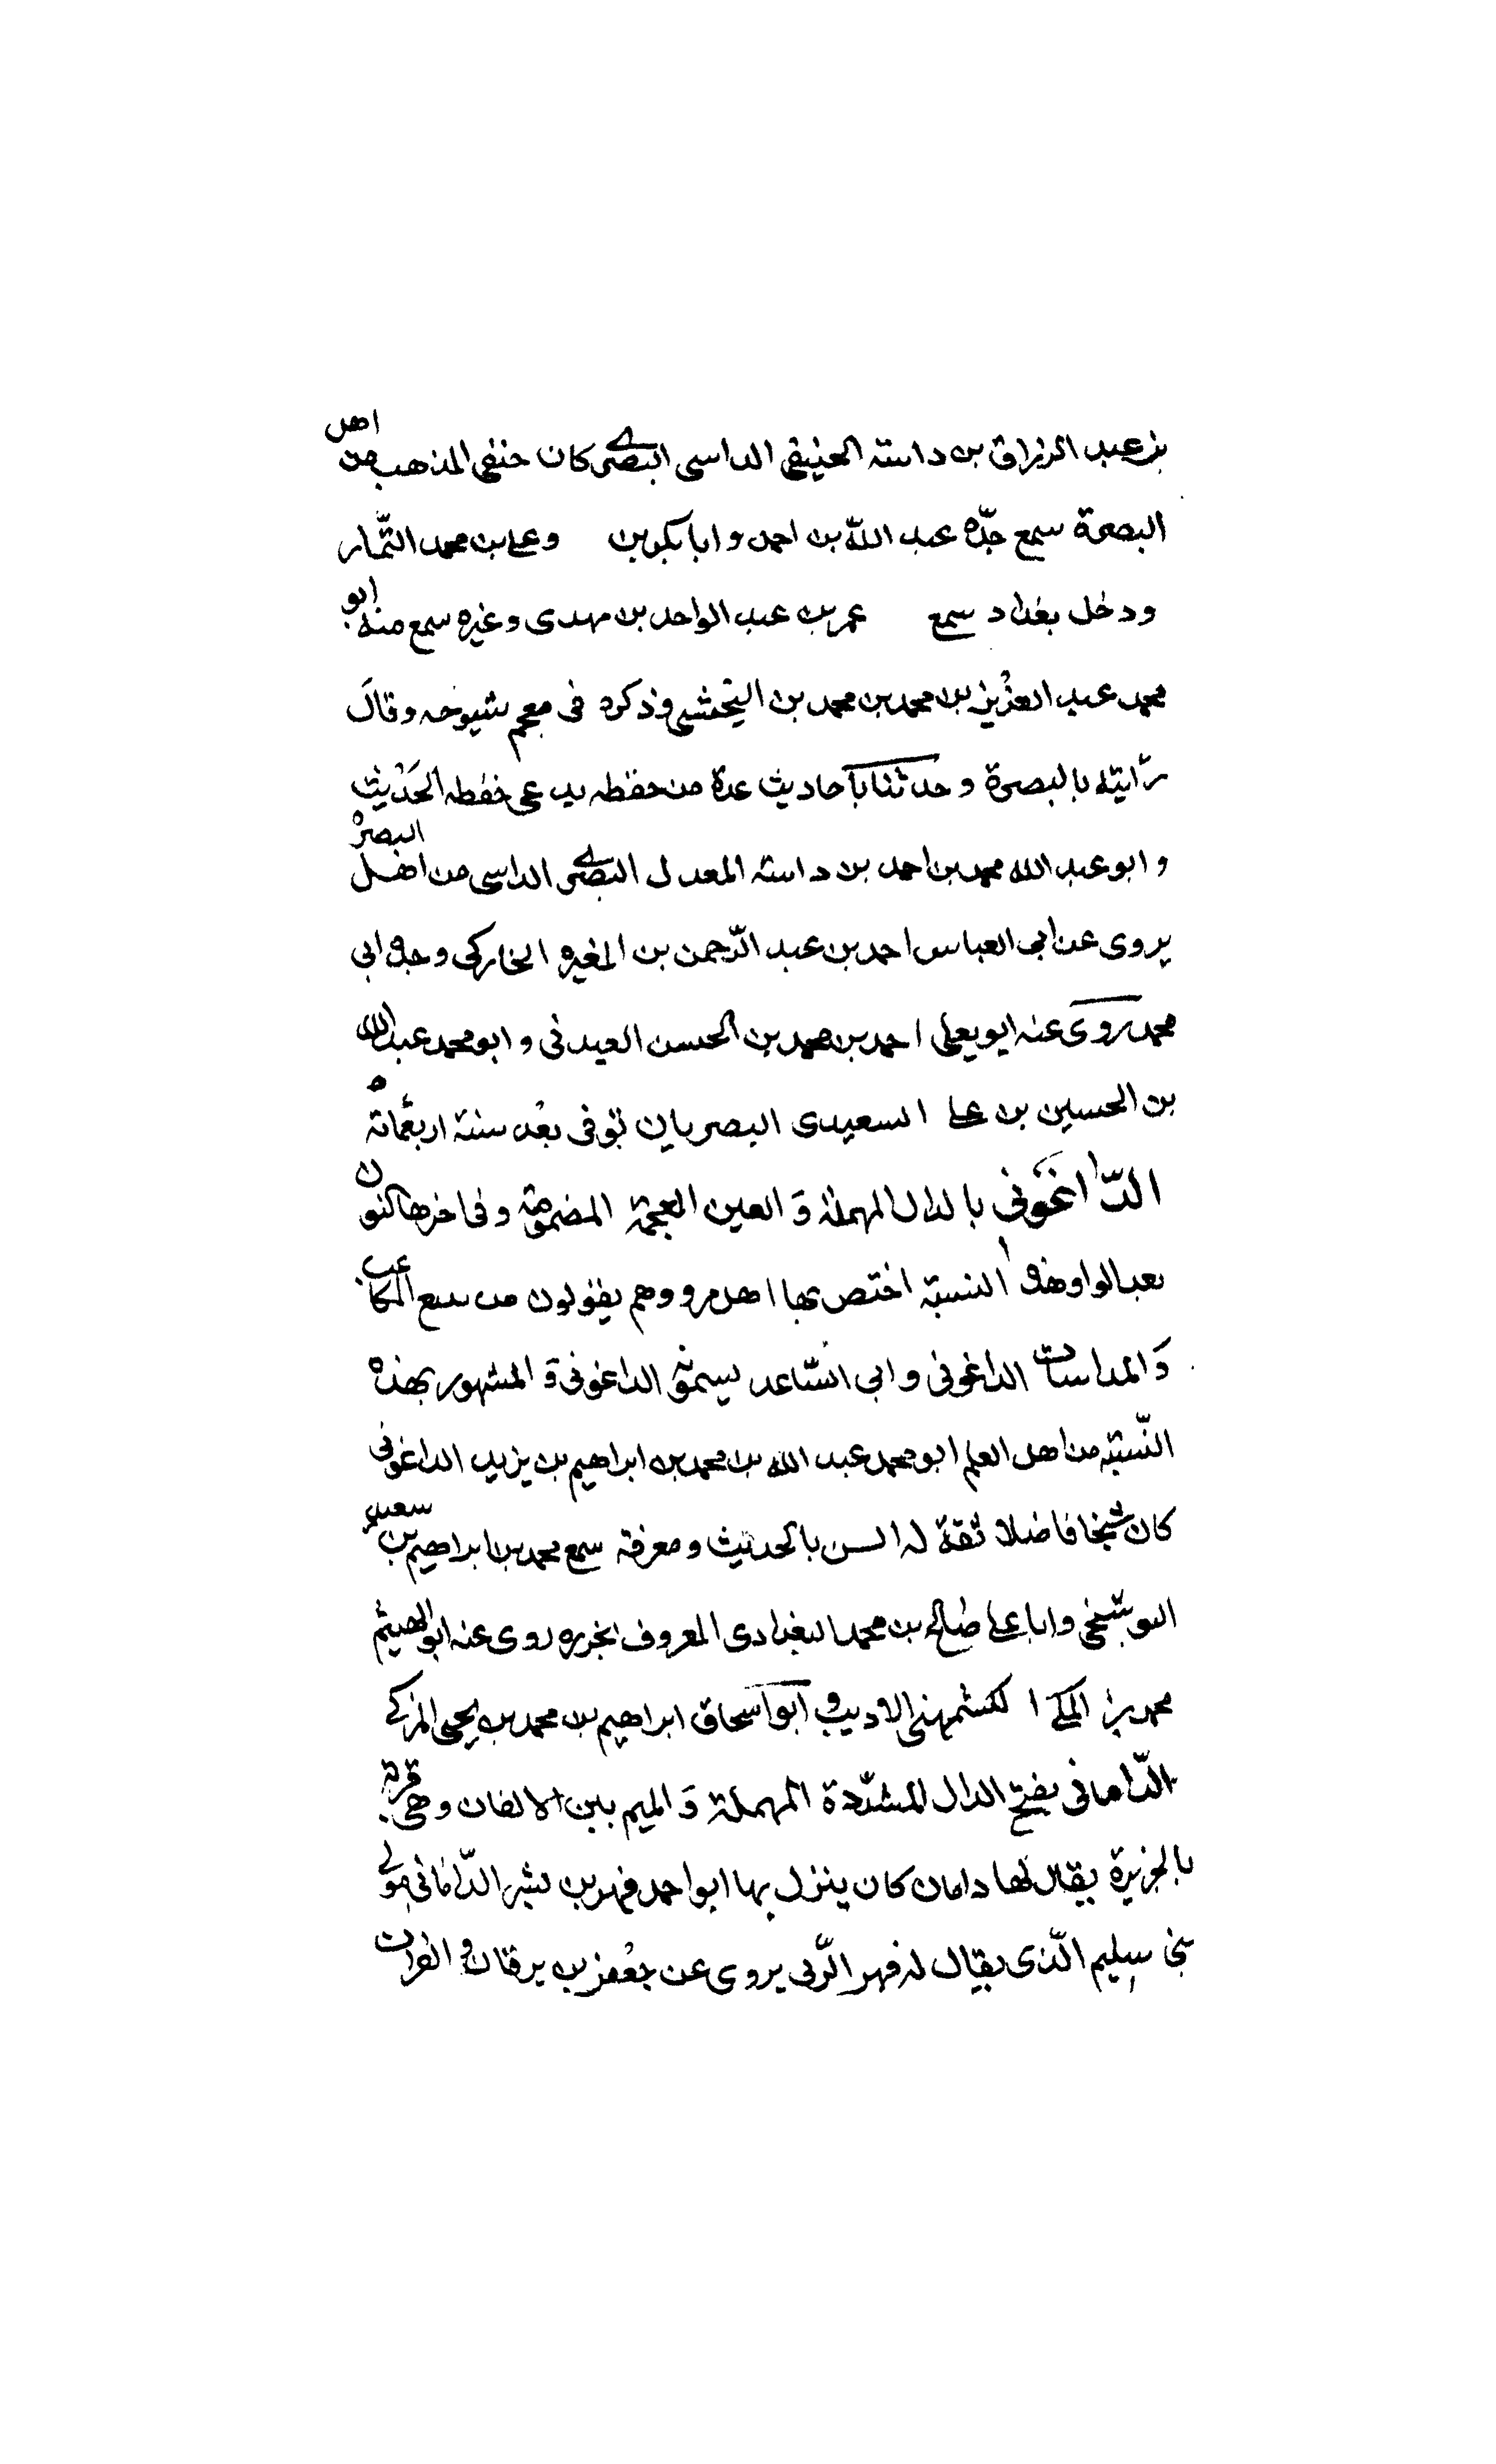 بن عبد الرزاق بن داسته الحنيفى الداسى البصرى كان حنفى المذهب من اهل
البصرة سمع جدّه عبد اللّه بن احمد و ابا بكر بن وعلى بن محمد التّمار
ودخل بغداد سمع عمر بن عبد الواحد بن مهدى وغيره سمع منه ابو
محمد عبد العزيز بن محمد بن محمد بن النخشبى وذكره فى معجم شيوخه وقال
رايته بالبصرة و حدثنا باحاديث عدة من حفظه يدعى حفظه الحديث
و ابو عبد الله محمد بن احمد بن داسته المعدل البصرى الداسى من اهل البصرة
يروى عن ابى العباس احمد بن عبد الرّحمن بن المغيره الخاركى وجده ابى
محمد روى عنه ابو يعلى احمد بن محمد بن الحسن العبدى و ابو محمد عبد الله
بن الحسين بن على السعيدى البصريان توفى بعد سنة اربعمائة
الدّاغونى بالدال المهملة و العين المعجمة المضمومة وفى اخرها النون
بعد الواو هذه النسبة اختص بها اهل مرو وهم يقولون من يبيع المكاعب
و المداسات الداغونى و ابى الساعد يسمونه الداغونى و المشهور بهذه
النّسبة من اهل العلم ابو محمد عبد الله بن محمد بن ابراهيم بن يزيد الداغونى
كان شيخا فاضلا ثقة له انس بالحديث ومعرفة سمع محمد بن ابراهيم بن سعيد
البوشنجى و ابا على صالح بن محمد البغدادى المعروف بجزره روى عنه ابو الهيثم
محمد بن المكى الكشميهنى الاديب و ابو اسحاق ابراهيم بن محمد بن يحيى المزكى
الدّامانى بفتح الدال المشدّدة المهملة و الميم بين الالفان وهى قرية
بالجزيرة يقال لها دامان كان ينزل بها ابو احمد فهر بن بشر الدّامانى مولى
بنى سليم الّذى يقال له فهر الرّقى يروى عن جعفر بن برقان و الفرات